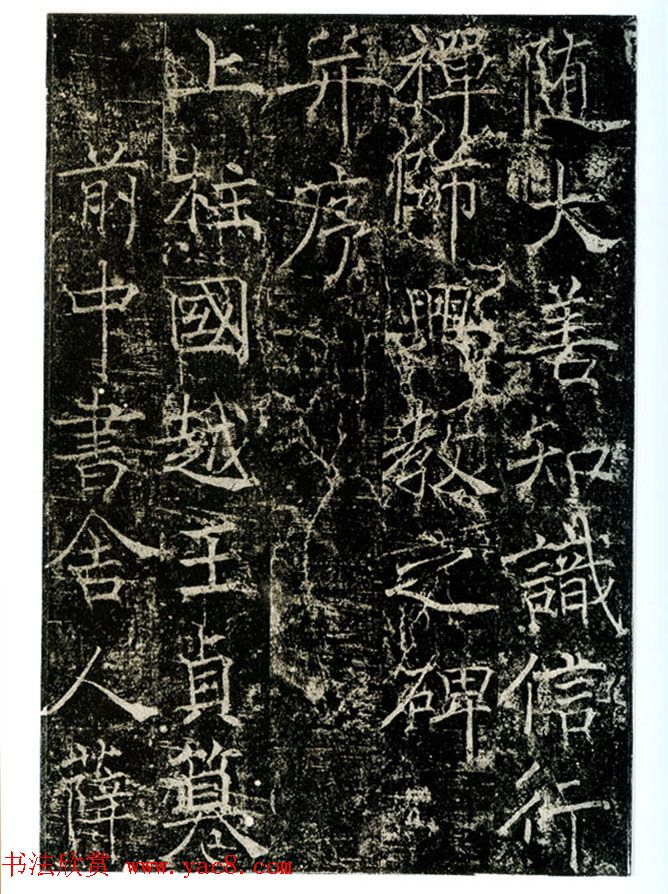 随大善知識信行
禪師興教之碑
并序
上柱國越王貞篡
前中書舍人薛
书法欣赏 www.yac8.com